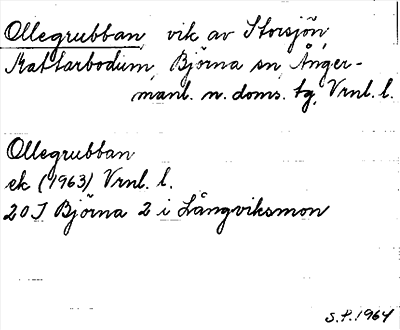 Ollegrubban, vik av Storsjön,
Kattarbodum, Björna sn, Ånger-
manl. n. doms. tg, Vrnl. l.
Ollegrubban
ek (1963) Vrnl. l.
20 J Björna 2 i Långviksmon
S.F. 1964